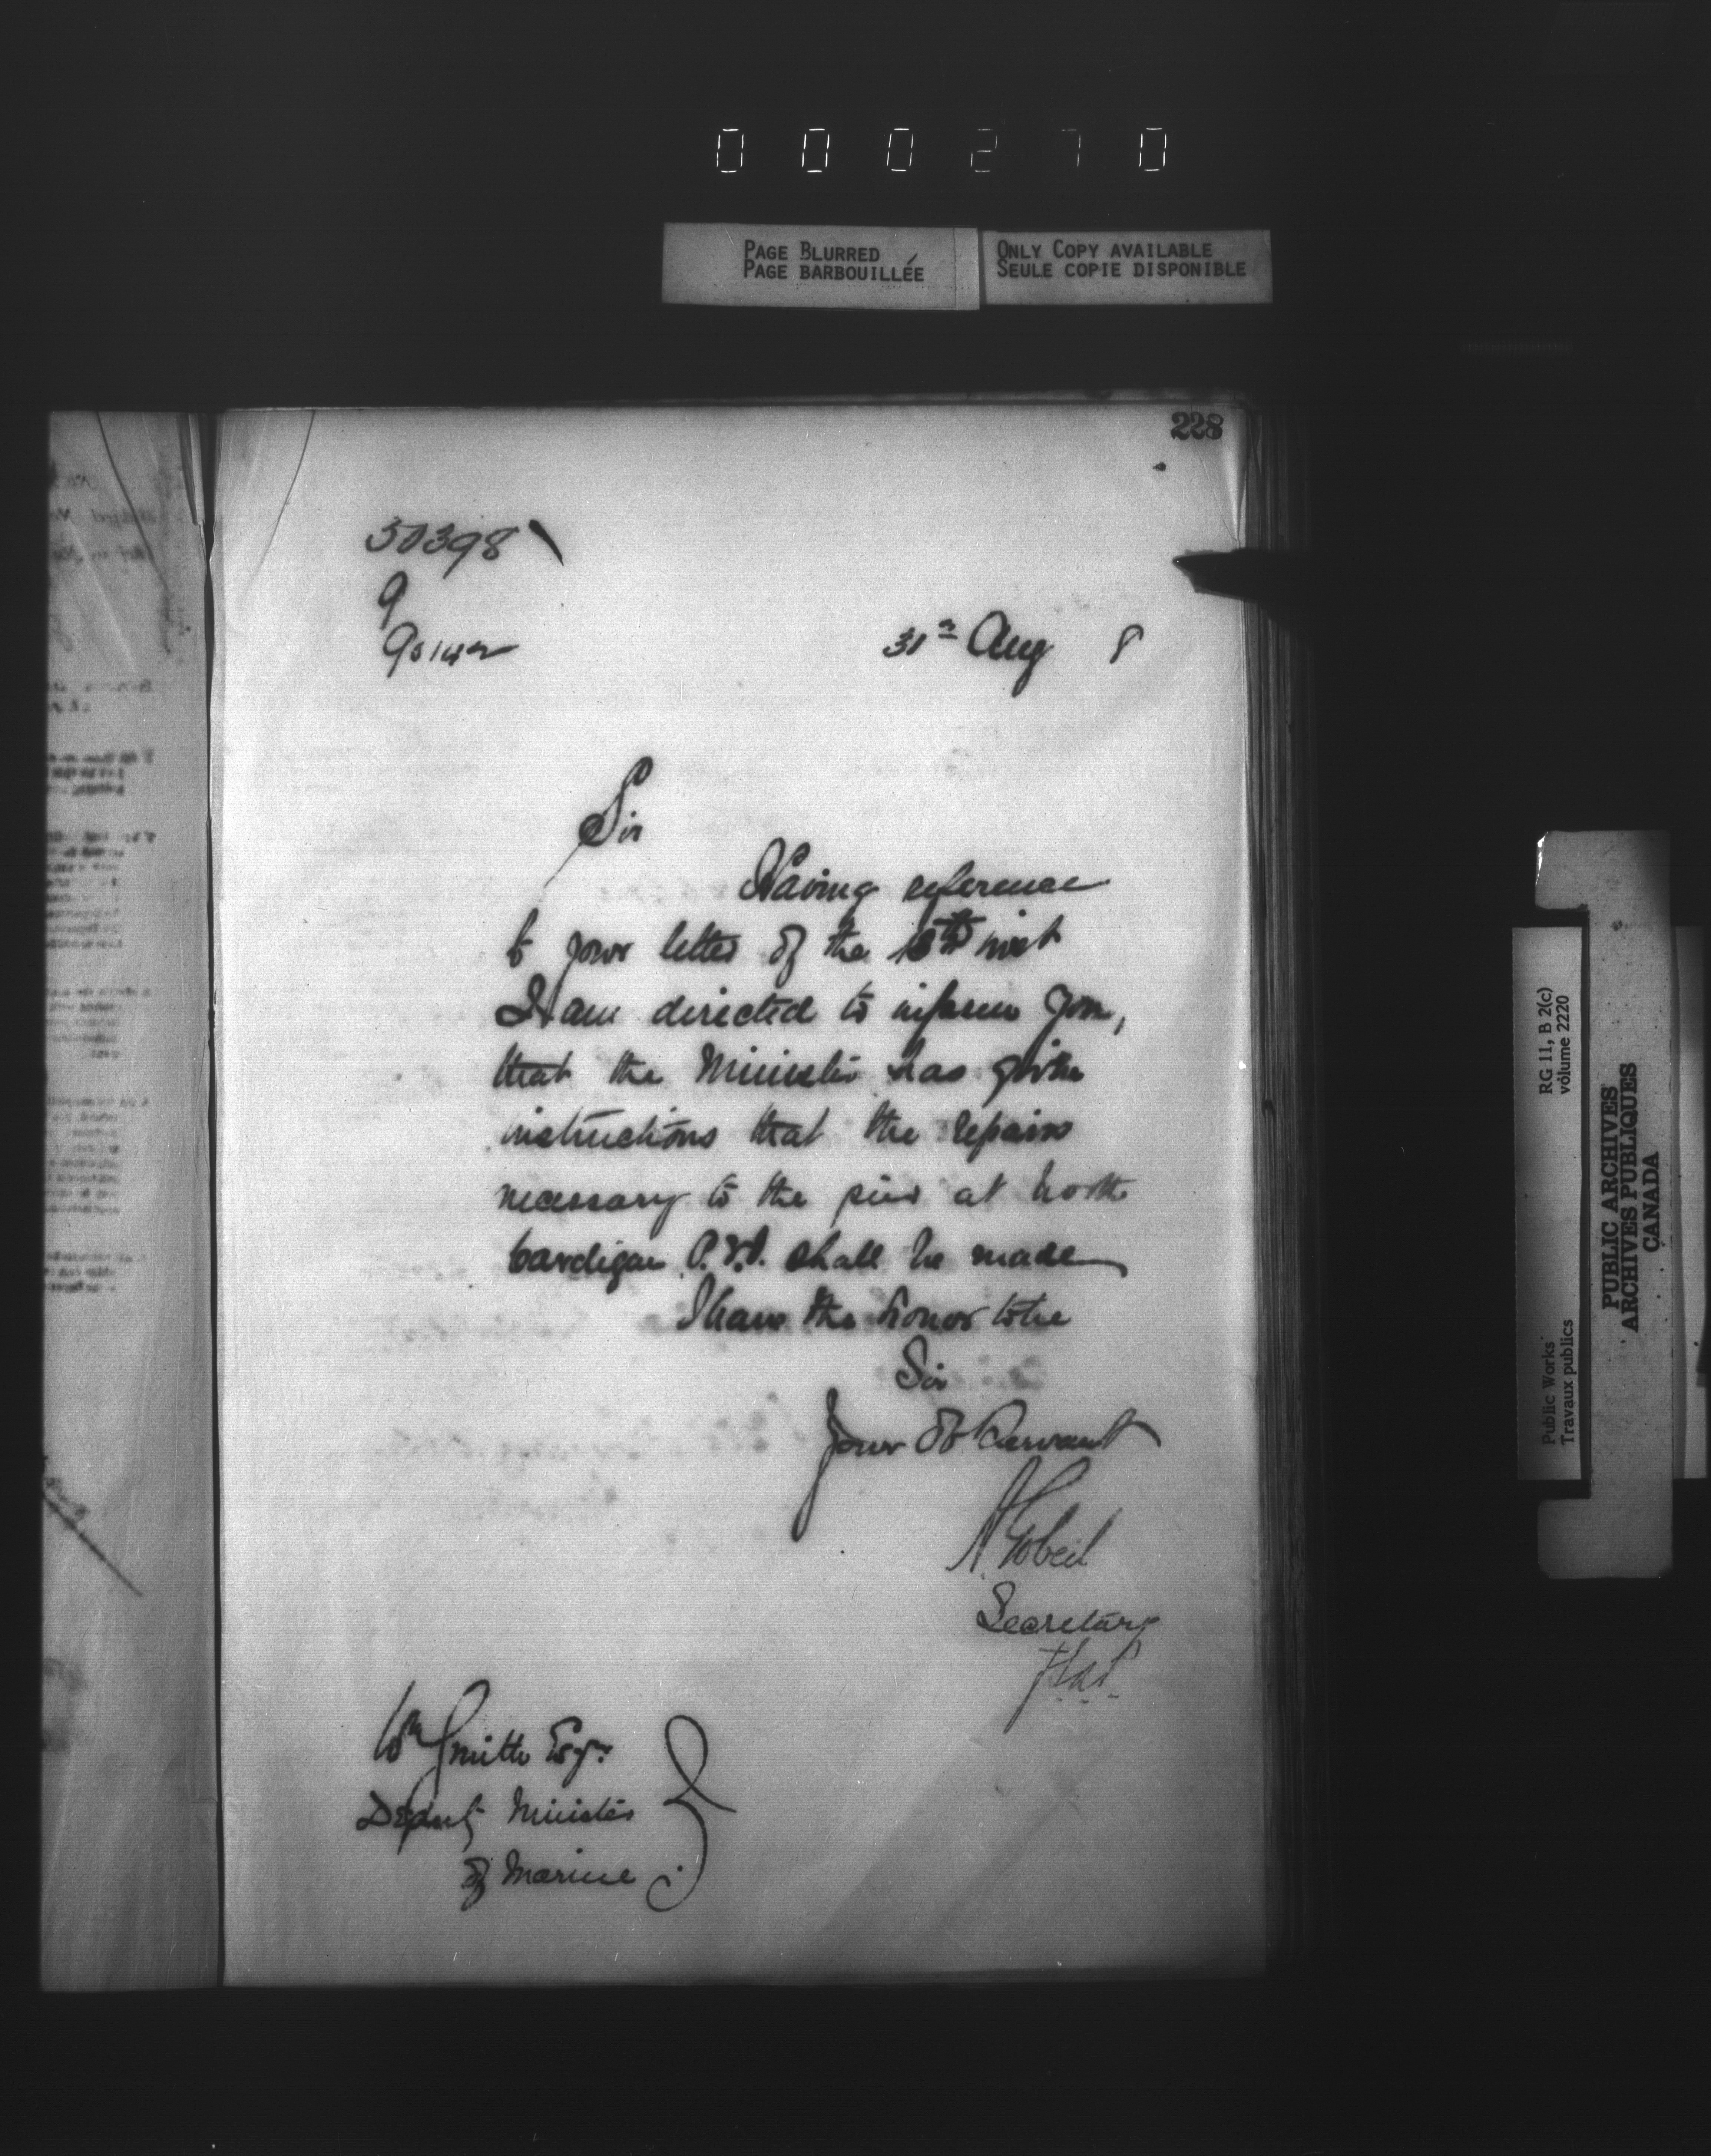 000270
PAGE BLURRED
PAGE BARBOUILLÉE
ONLY COPY AVAILABLE
SEULE COPIE DISPONIBLE
228
50398
9
31st Aug 8
Sir
Having reference
to your letter of the 18th inst
I am directed to inform you,
that the Minister has given
instructions that the repairs
necessary to the pier at North
Cardigan P.E.I. shall be made
I have the honor to be
Sir
Your Ob Servant
A Gobeil
Secretary
Wm Smith Esqre
Deputy Minister
of Marine
RG 11, B 2(c)
volume 2220
Public Works
Travaux publics
PUBLIC ARCHIVES
ARCHIVES PUBLIQUES
CANADA